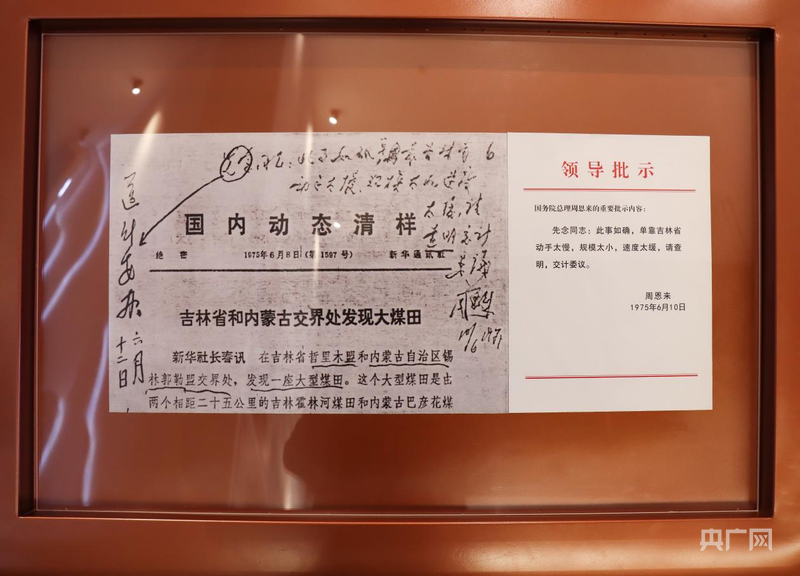 先念同志：此事如确，单靠吉林省
动手太慢，规模太小，速度
太缓，请
查明，交计
委议。
周恩来
10/6 1975
六月
十二日
国内动态清样
绝密 1975年6月8日（第1597号） 新华通讯社
吉林省和内蒙古交界处发现大煤田
新华社长春讯 在吉林省哲里木盟和内蒙古自治区锡
林郭勒盟交界处，发现一座大型煤田。这个大型煤田是由
两个相距二十五公里的吉林霍林河煤田和内蒙古巴彦花煤
领导批示
国务院总理周恩来的重要批示内容：
先念同志：此事如确，单靠吉林省
动手太慢，规模太小，速度太缓，请查
明，交计委议。
周恩来
1975年6月10日
央广网